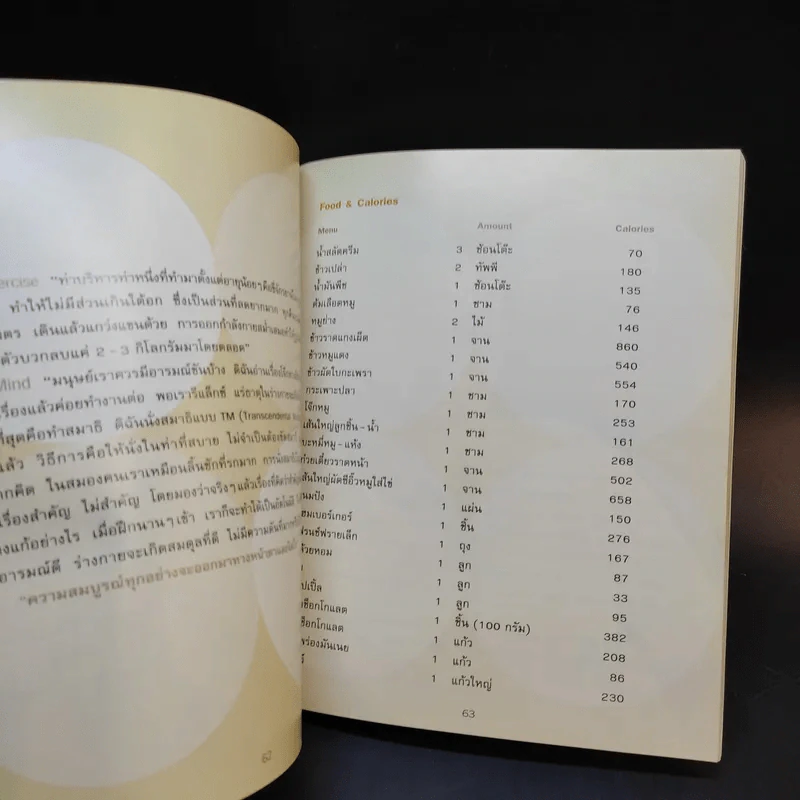 ercise "ท่าบริหารท่าหนึ่งที่ทำมาตั้งแต่อายุน้อยๆคือ
ทำให้ไม่มีส่วนเกินใต้อก ซึ่งเป็นส่วนที่ลดยากมาก
ตร เดินแล้วแกว่งแขนด้วย การออกกำลังกายสม่ำเสมอ
ตัวบวกลบแค่ 2 - 3 กิโลกรัมมาโดยตลอด"
Mind "มนุษย์เราควรมีอารมณ์ขันบ้าง ดิฉันอ่านเรื่อง
เรื่องแล้วค่อยทำงานต่อ พอเรารีแล็กซ์ แร่ธาตุในร่างกาย
ที่สุดคือทำสมาธิ ดิฉันนั่งสมาธิแบบ TM (Transcendental
แล้ว วิธีการคือให้นั่งในท่าที่สบาย ไม่จำเป็นต้อง
ากคิด ในสมองคนเราเหมือนลิ้นชักที่รกมาก การนั่งสมาธิ
เรื่องสำคัญ ไม่สำคัญ โดยมองว่าจริงๆแล้วเรื่องที่คิดว่า
งแก้อย่างไร เมื่อฝึกนานๆเข้า เราก็จะทำได้เป็นอัตโนมัติ
อารมณ์ดี ร่างกายจะเกิดสมดุลที่ดี ไม่มีความดัน
"ความสมบูรณ์ทุกอย่างจะออกมาทางหน้าตา
62
Food & Calories
Menu Amount Calories
น้ำสลัดครีม 3 ช้อนโต๊ะ 70
ข้าวเปล่า 2 ทัพพี 180
น้ำมันพืช 1 ช้อนโต๊ะ 135
ต้มเลือดหมู 1 ชาม 76
หมูย่าง 2 ไม้ 146
ข้าวราดแกงเผ็ด 1 จาน 860
ข้าวหมูแดง 1 จาน 540
ข้าวผัดใบกะเพรา 1 จาน 554
กระเพาะปลา 1 ชาม 170
โจ๊กหมู 1 ชาม 253
เส้นใหญ่ลูกชิ้น-น้ำ 1 ชาม 161
บะหมี่หมู-แห้ง 1 ชาม 268
วยเตี๋ยวราดหน้า 1 จาน 502
เส้นใหญ่ผัดซีอิ๊วหมูใส่ไข่ 1 จาน 658
นมปัง 1 แผ่น 150
ฮมเบอร์เกอร์ 1 ชิ้น 276
ฟรนซ์ฟรายเล็ก 1 ถุง 167
ล้วยหอม 1 ลูก 87
1 ลูก 33
ปเปิ้ล 1 ลูก 95
ช็อกโกแลต 1 ชิ้น (100 กรัม) 382
ช็อกโกแลต 1 แก้ว 208
พร่องมันเนย 1 แก้ว 86
ร์ 1 แก้วใหญ่ 230
63